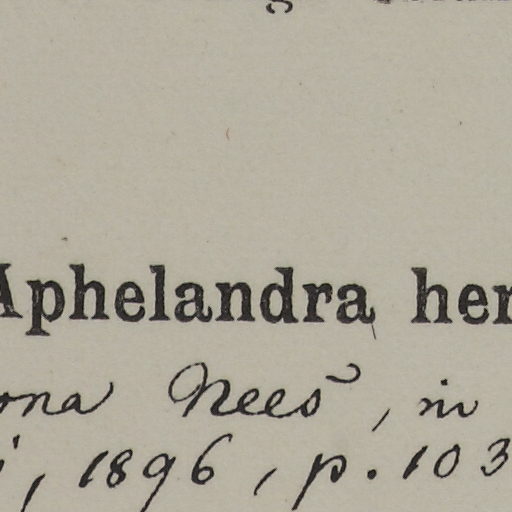 Aphelandra her
ona Nees, in
i, 1896, p. 103